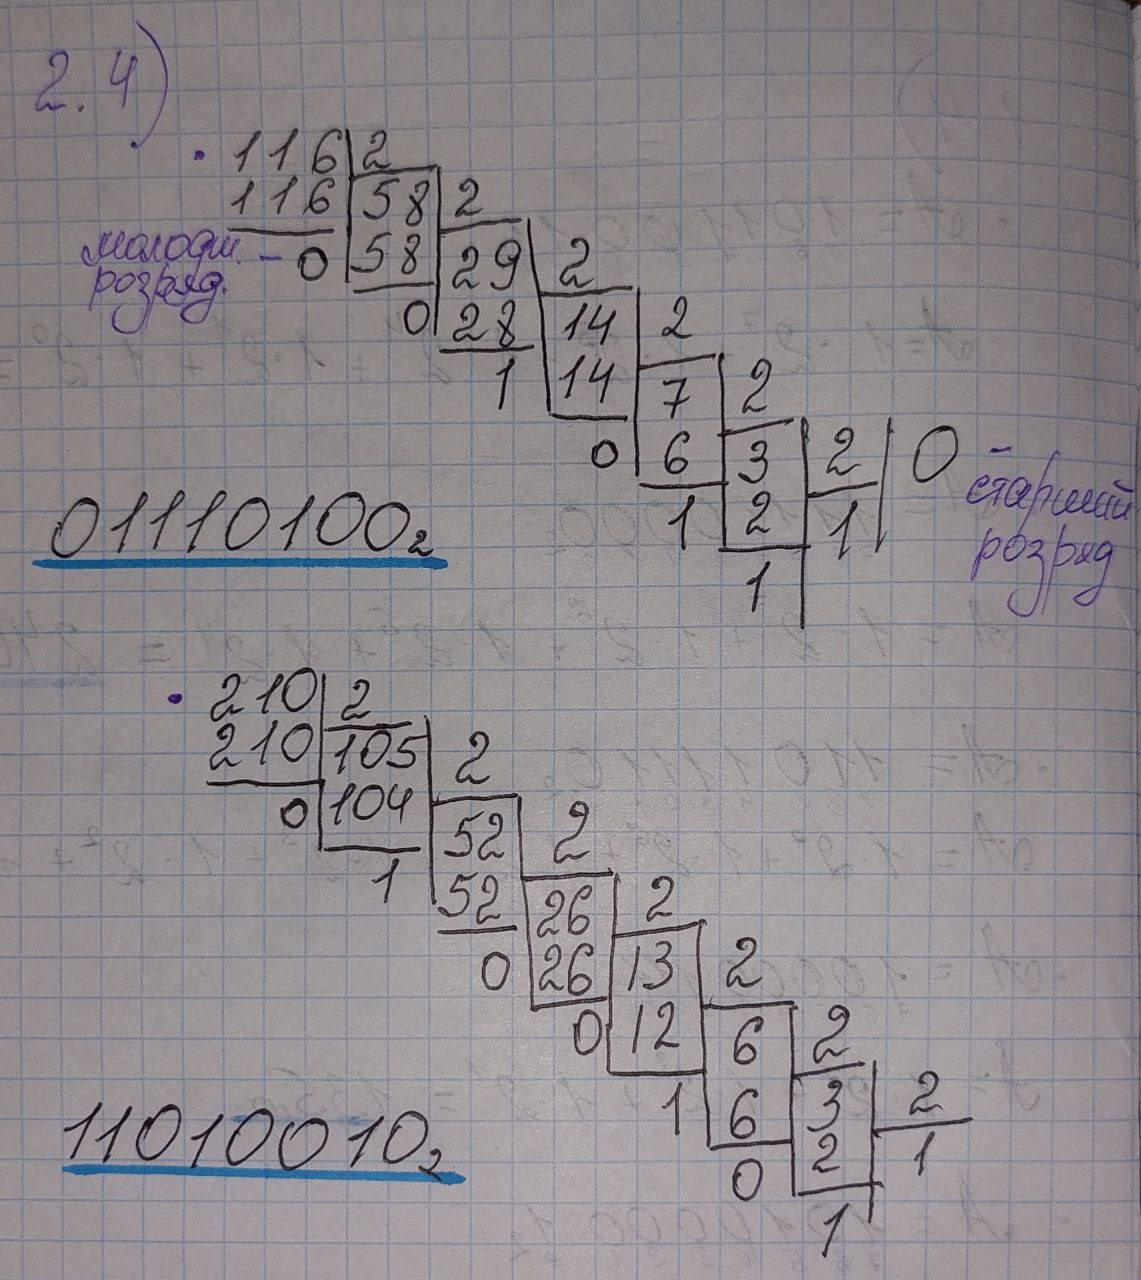 2.4)
116 2
116 58 2
молодш. - 0 58 29 2
розряд.
0 28 14 2
1 14 7 2
0 6 3 2 0 - старший
розряд
1 2 1
1
01110100₂
210 2
210 105 2
0 104 52 2
1 52 26 2
0 26 13 2
0 12 6 2
1 6 3 2
0 2 1
1
11010010₂